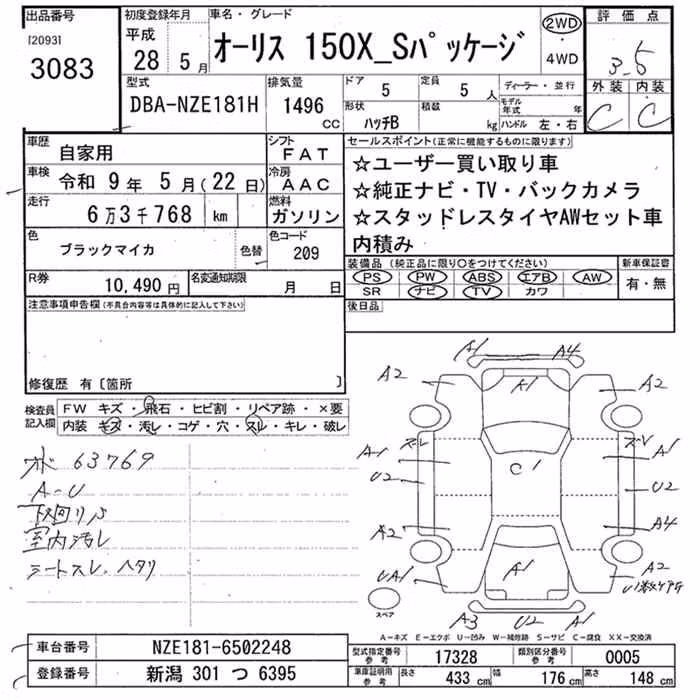 出品番号
[2093]
3083
初度登録年月
平成
28 5月
車名・グレード
オーリス 150X_Sパッケージ
2WD
・
4WD
評価点
3.5
外装 内装
C C
型式
DBA-NZE181H
排気量
1496
CC
ドア
5
定員
5人
形状
ハッチB
積載
kg
ディーラー・並行
モデル年式 年
ハンドル 左・右
車歴
自家用
シフト
FAT
車検
令和 9年 5月(22日)
冷房
AAC
走行
6万3千768 km
燃料
ガソリン
色
ブラックマイカ
色替
色コード
209
R券
10,490円
名変通知期限
月 日
セールスポイント(正常に機能するものに限ります)
☆ユーザー買い取り車
☆純正ナビ・TV・バックカメラ
☆スタッドレスタイヤAWセット車
内積み
装備品(純正品に限り○をつけてください)
PS PW ABS エアB AW
SR ナビ TV カワ
新車保証書
有・無
後日品
注意事項申告欄(不具合内容等は具体的に記入して下さい)
修復歴 有〔箇所 〕
検査員
記入欄
FW キズ・飛石・ヒビ割・リペア跡・×要
内装 キズ・汚レ・コゲ・穴・スレ・キレ・破レ
63769
A-U
下回りS
室内汚レ
シートスレ、ヘタリ
A1 A4
A2 A1 A2
ズレ
A1 C1 A1
U2 U2
A2 A4
UA1 A1 A2
A3 U2 A1
スペア
A-キズ E-エクボ U-凹み W-補修跡 S-サビ C-腐食 XX-交換済
車台番号
NZE181-6502248
型式指定番号
参考
17328
類別区分番号
参考
0005
登録番号
新潟 301 つ 6395
車庫証明用
参考
長さ 433 cm
幅 176 cm
高さ 148 cm